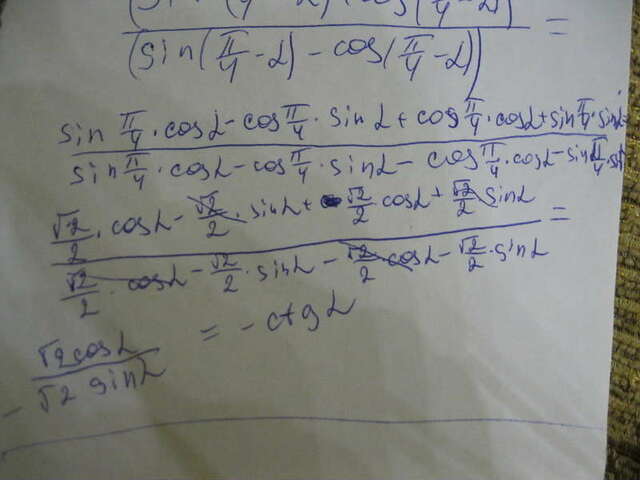 (sin(π/4 - α) + cos(π/4 - α))
(sin(π/4 - α) - cos(π/4 - α)) =
sin π/4 · cosα - cos π/4 · sinα + cos π/4 · cosα + sin π/4 · sinα
sin π/4 · cosα - cos π/4 · sinα - cos π/4 · cosα - sin π/4 · sin
√2/2 · cosα - √2/2 · sinα + √2/2 cosα + √2/2 sinα
√2/2 · cosα - √2/2 · sinα - √2/2 cosα - √2/2 · sinα =
- √2cosα / √2 sinα = - ctgα